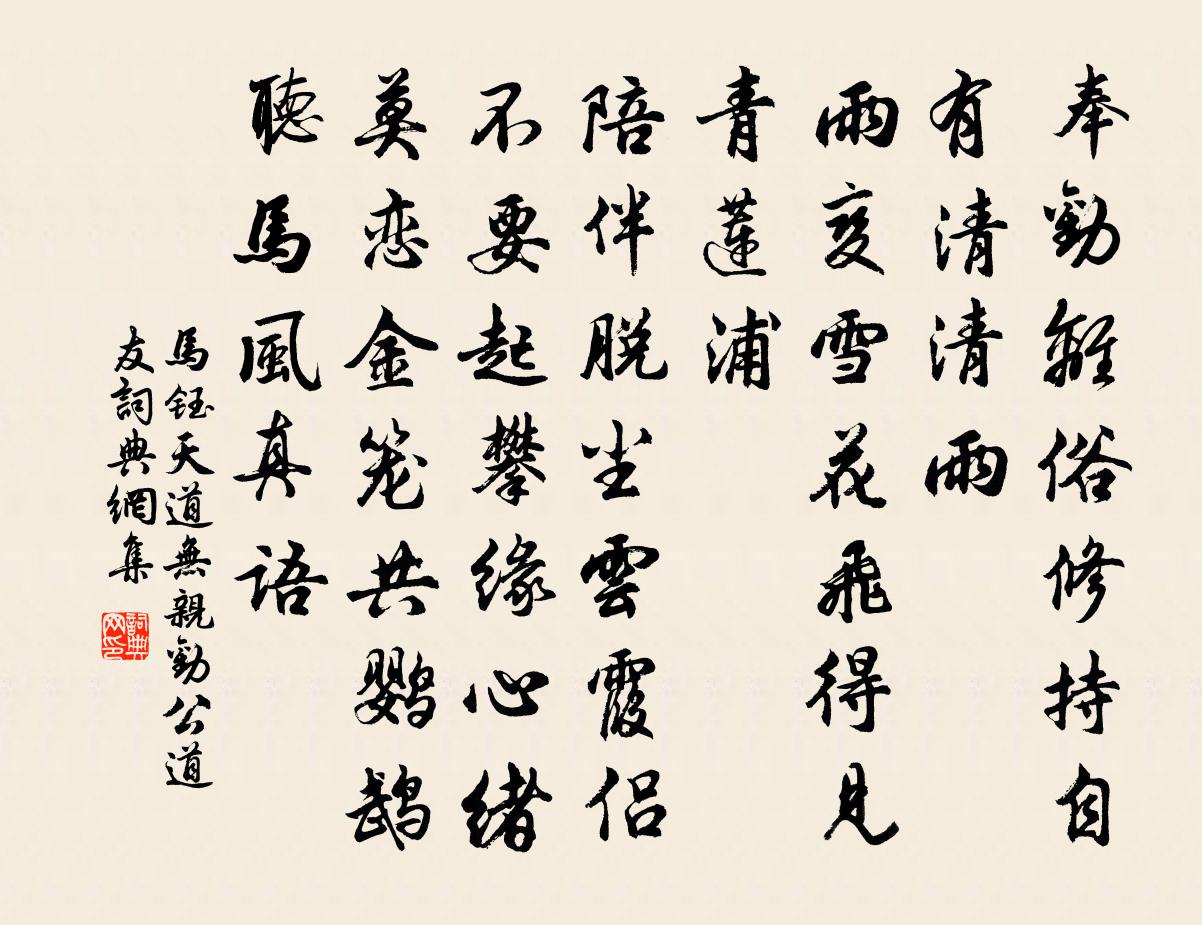 奉勸離俗修持自
有清清雨
雨变雪花飛得見
青蓮浦
陪伴脱尘雲霞侣
不要起攀缘心緒
莫恋金笼共鹦鹉
聽馬風真语
馬鈺天道無親勸公道
友詞典網集
詞典网印